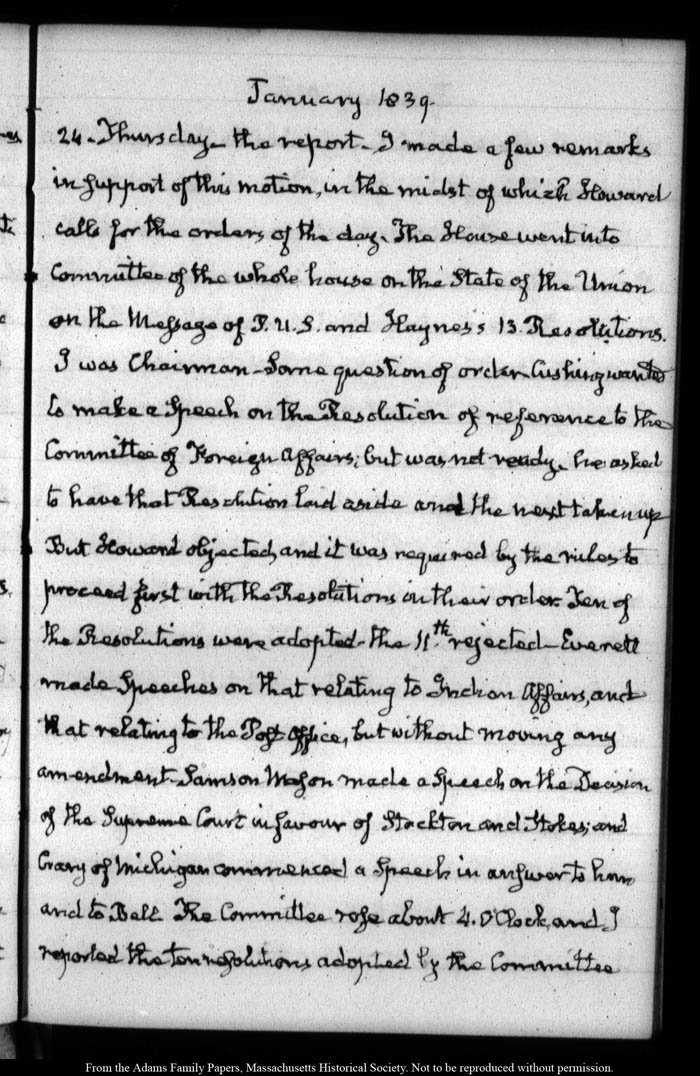 January 1839.
24. Thursday. the report. I made a few remarks
in support of this motion, in the midst of which Howard
calls for the orders of the day. The House went into
Committee of the whole house on the State of the Union
on the Message of P. U. S. and Haynes's 13. Resolutions.
I was Chairman. Some question of order. Cushing wanted
to make a Speech on the Resolution of reference to the
Committee of Foreign affairs; but was not ready. he asked
to have that Resolution laid aside and the next taken up
But Howard objected, and it was required by the rules to
proceed first with the Resolutions in their order. Ten of
the Resolutions were adopted. the 11th rejected. Everett
made Speeches on that relating to Indian Affairs, and
that relating to the Post Office, but without moving any
amendment. Samson Mason made a Speech on the Decision
of the Supreme Court in favour of Stockton and Stokes; and
Crary of Michigan commenced a Speech in answer to him
and to Bell. The Committee rose about 4. O'Clock, and I
reported the ten resolutions adopted by the Committee
From the Adams Family Papers, Massachusetts Historical Society. Not to be reproduced without permission.